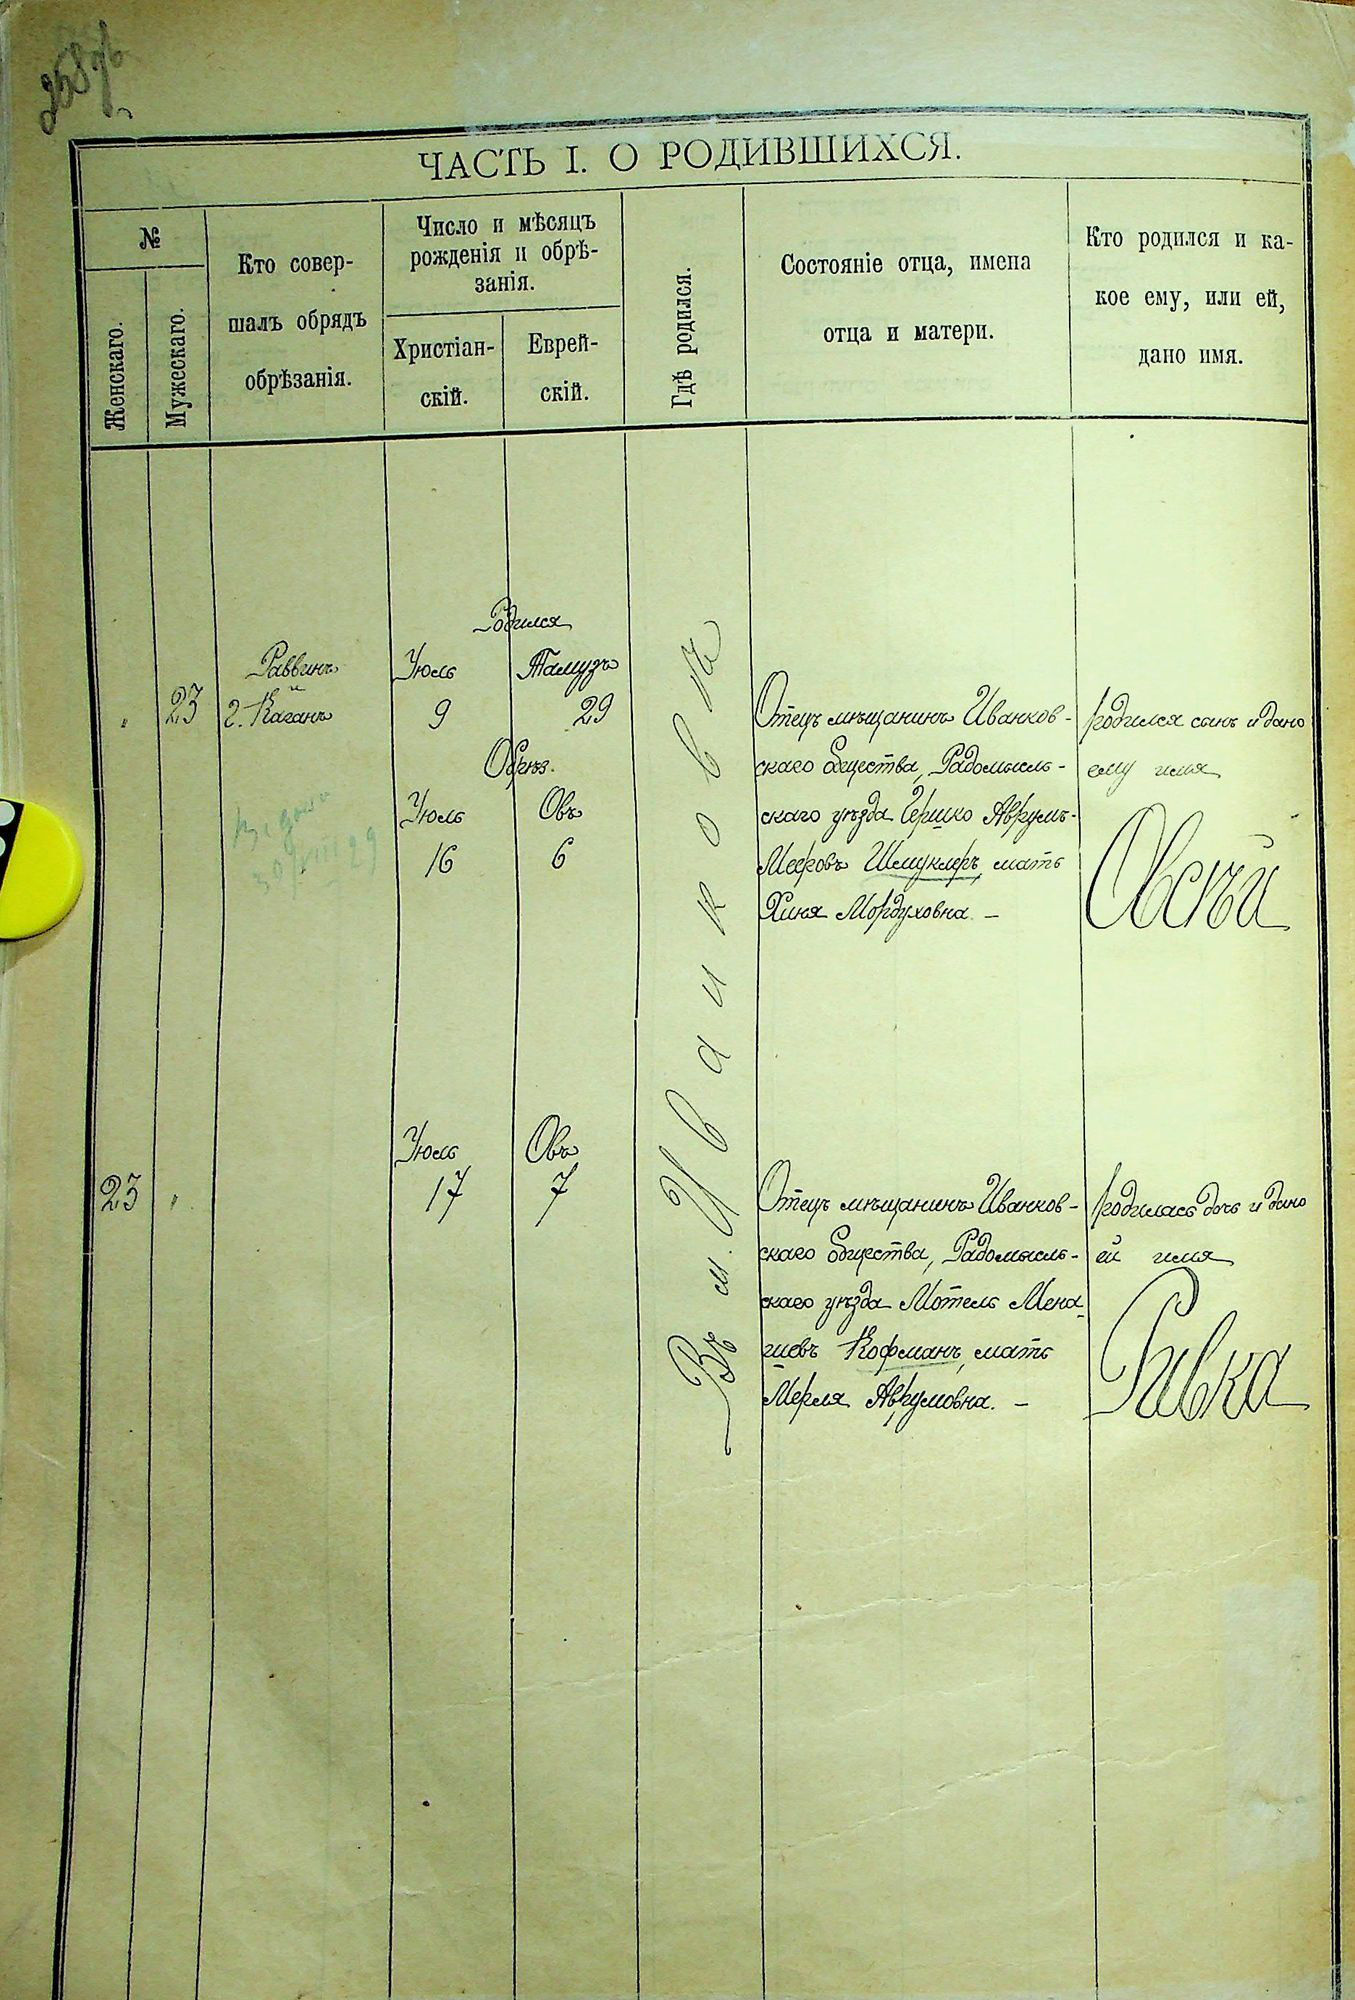 ЧАСТЬ I. О РОДИВШИХСЯ.
№
Женскаго.
Мужескаго.
Кто совер-
шалъ обрядъ
обрѣзанія.
Число и мѣсяцъ
рожденія и обрѣ-
занія.
Христіан-
скій.
Еврей-
скій.
Гдѣ родился.
Состояніе отца, имена
отца и матери.
Кто родился и ка-
кое ему, или ей,
дано имя.
Родился
Раввинъ
Іюль
Тамузъ
„ 23
Г. Каганъ
9
29
Обрѣз.
Іюль
Овъ
16
6
Въ м. Иванковѣ
Отецъ мѣщанинъ Иванков-
скаго общества, Радомысль-
скаго уѣзда Гершко Аврумъ-
Мееровъ Шмуклеръ, мать
Хиня Мордуховна. —
родился сынъ и дано
ему имя
Овсѣй
Іюль
Овъ
23 „
17
7
Отецъ мѣщанинъ Иванков-
скаго общества, Радомысль-
скаго уѣзда Мотель Мена-
шевъ Кофманъ, мать
Мерля Аврумовна. —
родилась дочь и дано
ей имя
Ривка